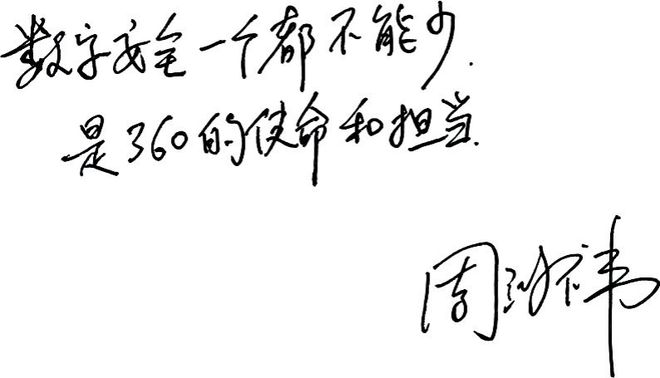 数字安全一个都不能少.
是360的使命和担当.
周鸿祎